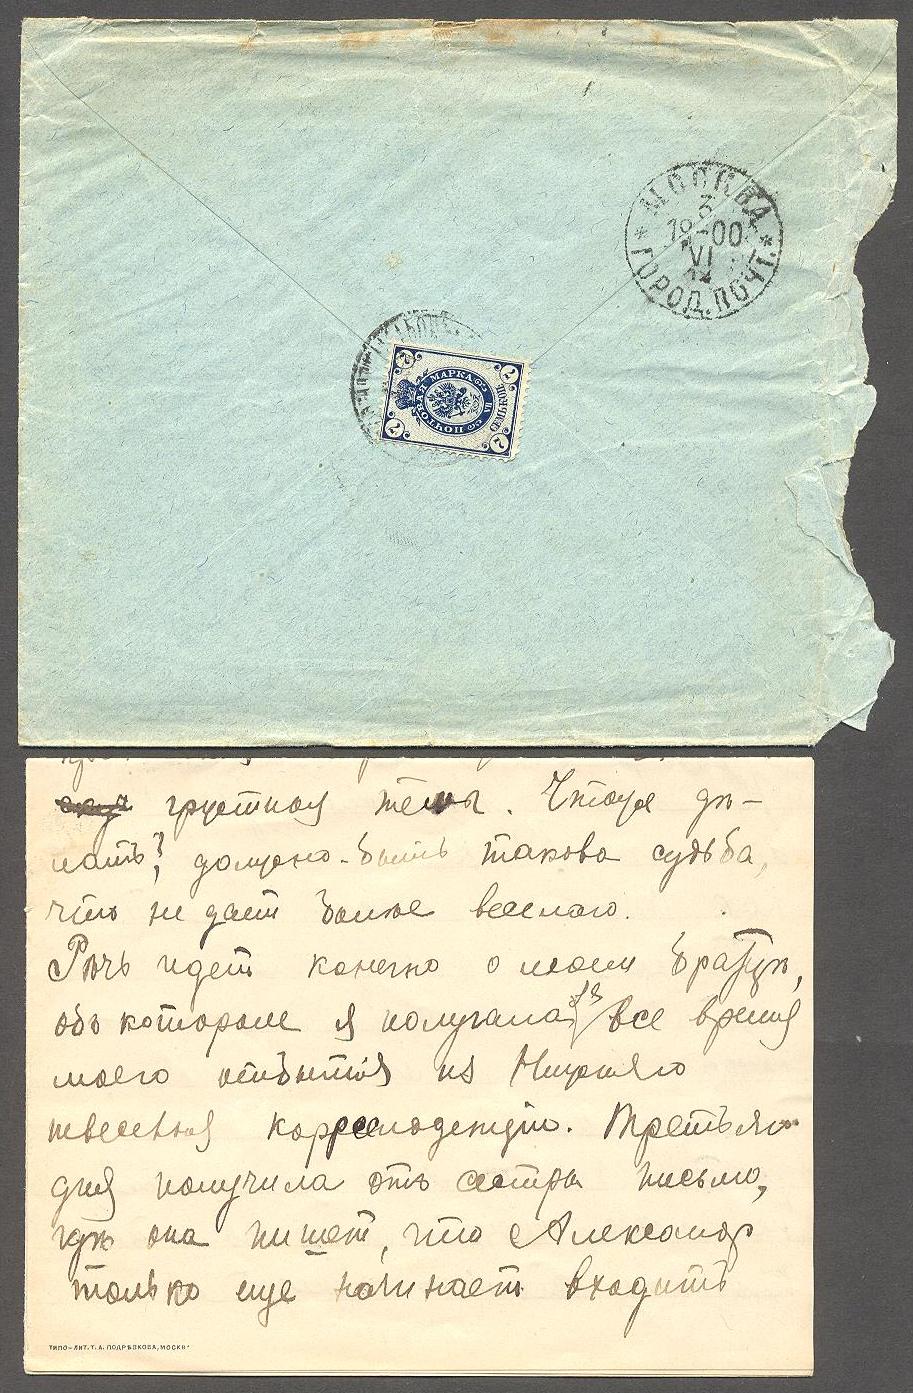 МОСКВА
3
19-00
VI
12
ГОРОД. ПОЧТ.
МАРКА
СЕМЬ КОП.
VII
7
7
7
7
грустной темы. Чтоже дѣ-
лать? должно-быть такова судьба,
что не дает болѣе веселаго.
Рѣчь идет конечно о моем братцѣ,
объ котором я получала въ все время
моего отбытія из Нижняго
корресподенцію. Третьяго
дня получила отъ сестры письмо,
гдѣ она пишет, что Александр
только еще начинает входить
ТИПО-ЛИТ. Т. А. ПОДРѢЗКОВА, МОСКВА